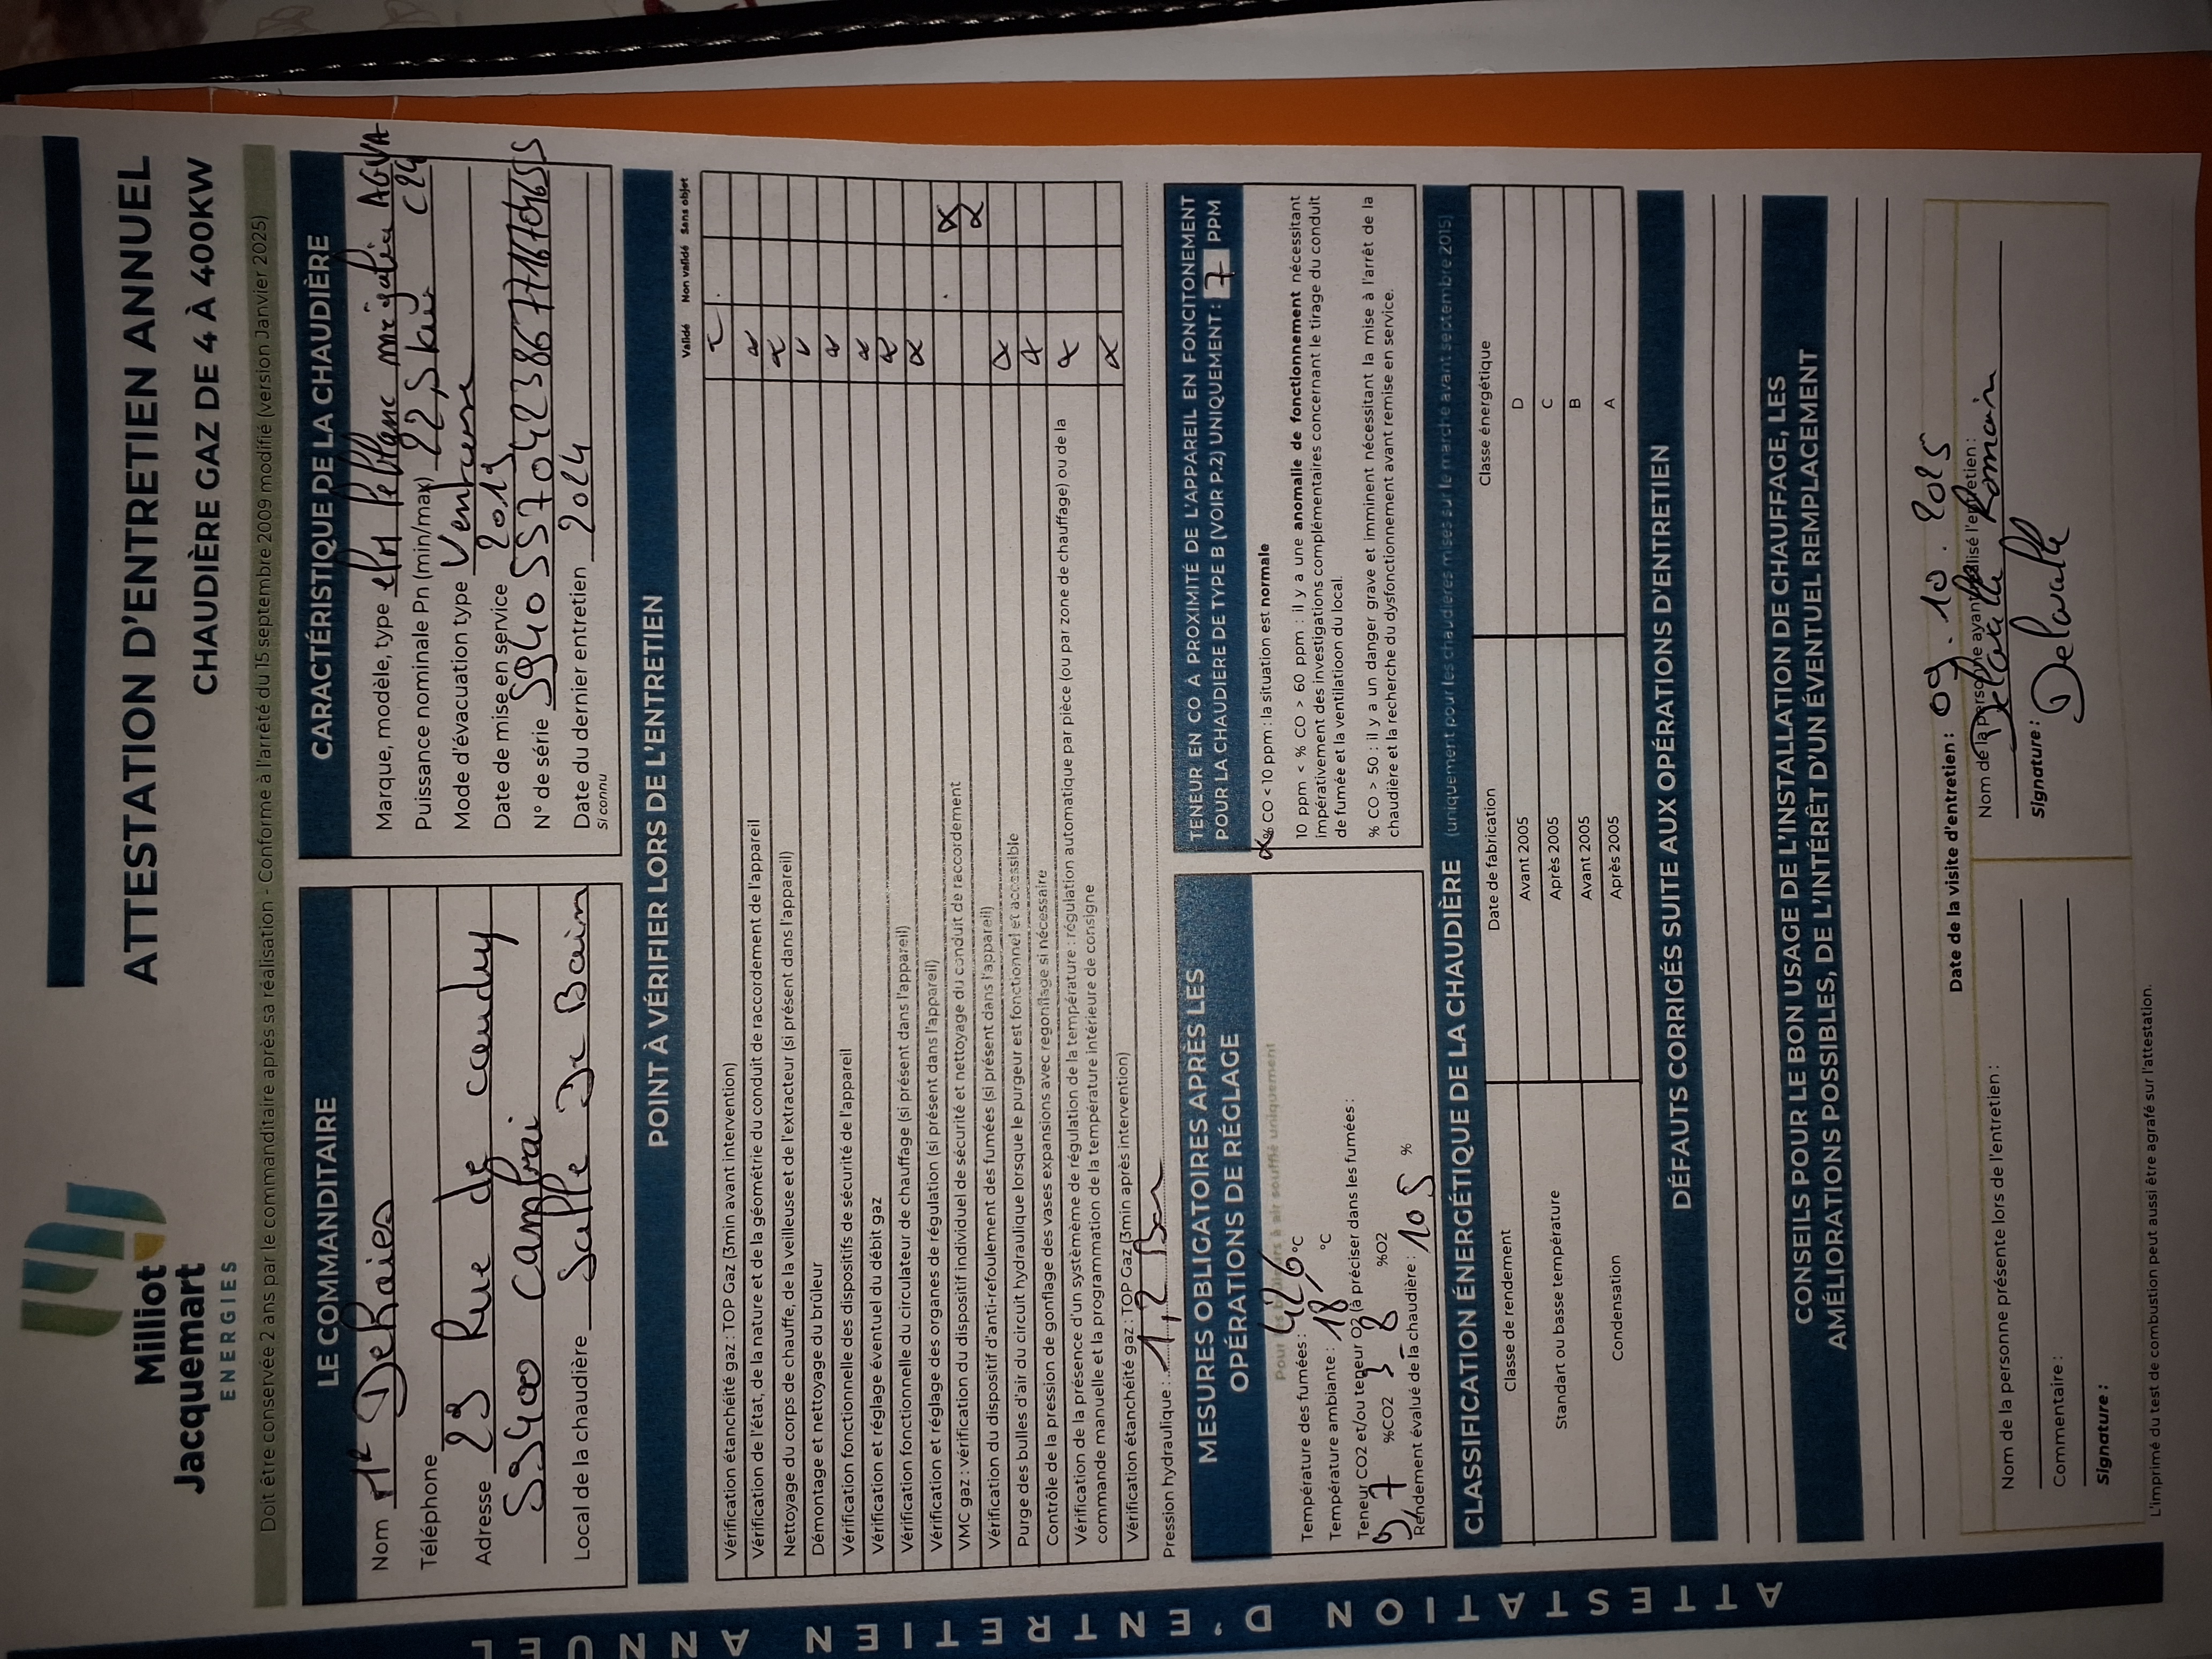 Milliot
Jacquemart
ENERGIES
ATTESTATION D'ENTRETIEN ANNUEL
CHAUDIÈRE GAZ DE 4 À 400KW
Doit être conservée 2 ans par le commanditaire après sa réalisation - Conforme à l'arrêté du 15 septembre 2009 modifié (version Janvier 2025)
LE COMMANDITAIRE
Nom Mr Dehaies
Téléphone
Adresse 23 Rue de caudry
59400 Cambrai
Local de la chaudière Salle De Bain
CARACTÉRISTIQUE DE LA CHAUDIÈRE
Marque, modèle, type elm leblanc mégalia AGVA
C24
Puissance nominale Pn (min/max) 22,5 kw
Mode d'évacuation type Ventouse
Date de mise en service 2019
N° de série
Date du dernier entretien 2024
Si connu
POINT À VÉRIFIER LORS DE L'ENTRETIEN
Validé Non validé Sans objet
Vérification étanchéité gaz : TOP Gaz (3min avant intervention)
Vérification de l'état, de la nature et de la géométrie du conduit de raccordement de l'appareil
Nettoyage du corps de chauffe, de la veilleuse et de l'extracteur (si présent dans l'appareil)
Démontage et nettoyage du brûleur
Vérification fonctionnelle des dispositifs de sécurité de l'appareil
Vérification et réglage éventuel du débit gaz
Vérification fonctionnelle du circulateur de chauffage (si présent dans l'appareil)
Vérification et réglage des organes de régulation (si présent dans l'appareil)
VMC gaz : vérification du dispositif individuel de sécurité et nettoyage du conduit de raccordement
Vérification du dispositif d'anti-refoulement des fumées (si présent dans l'appareil)
Purge des bulles d'air du circuit hydraulique lorsque le purgeur est fonctionnel et accessible
Contrôle de la pression de gonflage des vases expansions avec regonflage si nécessaire
Vérification de la présence d'un systèmème de régulation de la température : régulation automatique par pièce (ou par zone de chauffage) ou de la
commande manuelle et la programmation de la température intérieure de consigne
Vérification étanchéité gaz : TOP Gaz (3min après intervention)
Pression hydraulique : 1,2 Bar
MESURES OBLIGATOIRES APRÈS LES
OPÉRATIONS DE RÉGLAGE
Pour les brûleurs à air soufflé uniquement
Température des fumées : 42,6 °C
Température ambiante : 18 °C
Teneur CO2 et/ou teneur O2 (à préciser dans les fumées :
9,7 %CO2 3,8 %O2
Rendement évalué de la chaudière : 105 %
TENEUR EN CO À PROXIMITÉ DE L'APPAREIL EN FONCITONEMENT
POUR LA CHAUDIÈRE DE TYPE B (VOIR P.2) UNIQUEMENT : 7 PPM
% CO < 10 ppm : la situation est normale
10 ppm < % CO > 60 ppm : il y a une anomalie de fonctionnement nécessitant
impérativement des investigations complémentaires concernant le tirage du conduit
de fumée et la ventilatioon du local.
% CO > 50 : il y a un danger grave et imminent nécessitant la mise à l'arrêt de la
chaudière et la recherche du dysfonctionnement avant remise en service.
CLASSIFICATION ÉNERGÉTIQUE DE LA CHAUDIÈRE (uniquement pour les chaudières mises sur le marché avant septembre 2015)
Classe de rendement Date de fabrication Classe énergétique
Standart ou basse température Avant 2005 D
Après 2005 C
Condensation Avant 2005 B
Après 2005 A
DÉFAUTS CORRIGÉS SUITE AUX OPÉRATIONS D'ENTRETIEN
CONSEILS POUR LE BON USAGE DE L'INSTALLATION DE CHAUFFAGE, LES
AMÉLIORATIONS POSSIBLES, DE L'INTÉRÊT D'UN ÉVENTUEL REMPLACEMENT
Date de la visite d'entretien : 09.10.2025
Nom de la personne présente lors de l'entretien :
Commentaire :
Signature :
Nom de la personne ayant réalisé l'entretien :
Delavalle Romain
Signature :
Delavalle
L'imprimé du test de combustion peut aussi être agrafé sur l'attestation.
ATTESTATION D'ENTRETIEN ANNUEL